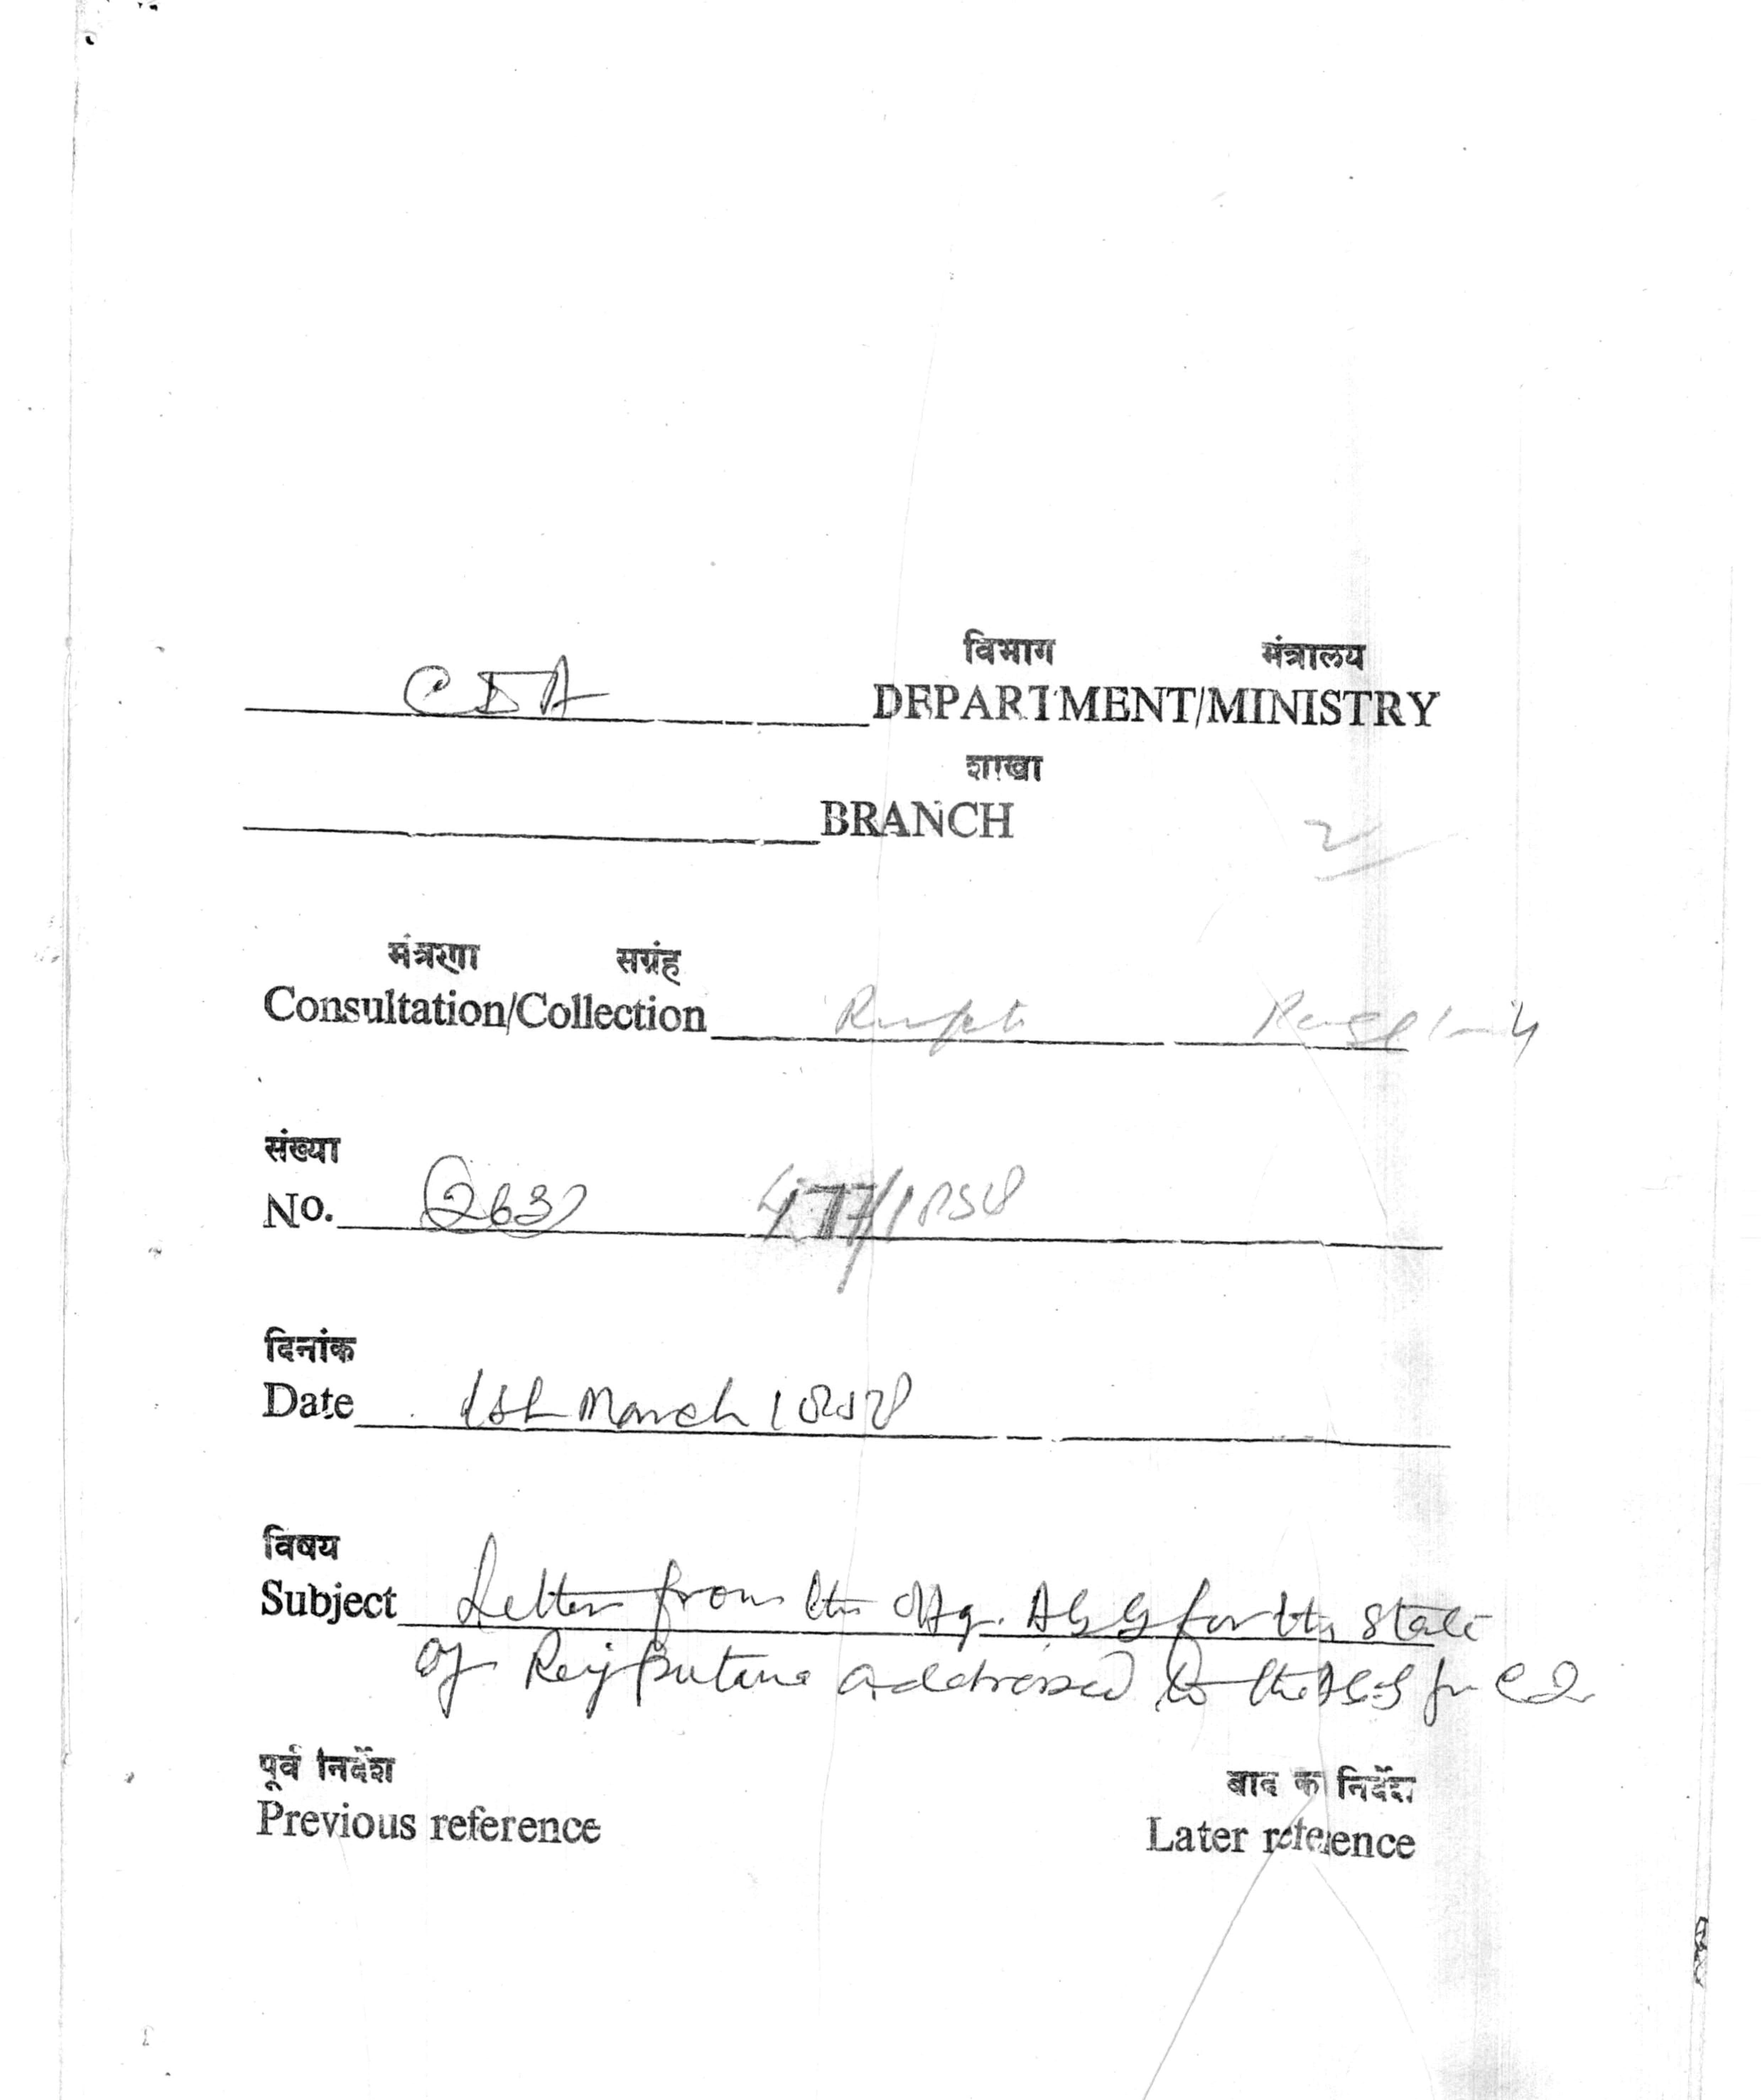 विभाग मंत्रालय
CIA DEPARTMENT/MINISTRY
शाखा
BRANCH
2
मंत्रणा सग्रंह
Consultation/Collection
संख्या
No. 2637 477/1858
दिनांक
Date 1st March 1858
विषय
Subject Letter from the Offg. AGG for the State
of Rajputana addressed to the AGG for CI
पूर्व निर्देश बाद का निर्देश
Previous reference Later reference